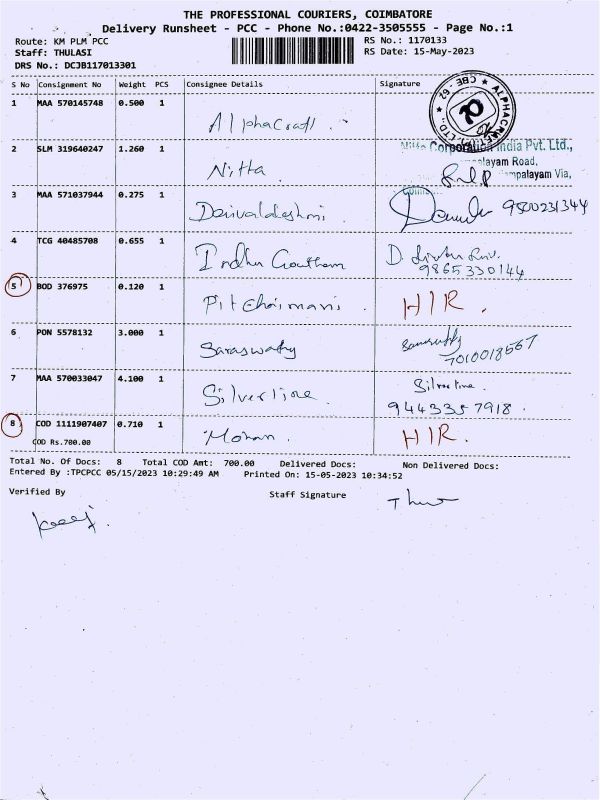 THE PROFESSIONAL COURIERS, COIMBATORE
Delivery Runsheet - PCC - Phone No.:0422-3505555 - Page No.:1
Route: KM PLM PCC
Staff: THULASI
DRS No.: DCJB117013301
RS No.: 1170133
RS Date: 15-May-2023
S No Consignment No Weight PCS Consignee Details Signature
1 MAA 570145748 0.500 1
Alphacraft.
ALPHACRAFT LTD., CBE - 62
2 SLM 319640247 1.260 1
Nitta
Nitta Corporation India Pvt. Ltd.,
Road,
3 MAA 571037944 0.275 1
9500231344
4 TCG 40485708 0.655 1
Indhu Goutham
9865330144
5 BOD 376975 0.120 1
Pitchaimani HIR.
6 PON 5578132 3.000 1
Saraswathy
7010018567
7 MAA 570033047 4.100 1
Silvertine. Silvertine.
9443357918.
8 COD 1111907407 0.710 1
Mohan. HIR.
COD Rs.700.00
Total No. Of Docs: 8 Total COD Amt: 700.00 Delivered Docs: Non Delivered Docs:
Entered By :TPCPCC 05/15/2023 10:29:49 AM Printed On: 15-05-2023 10:34:52
Verified By Staff Signature